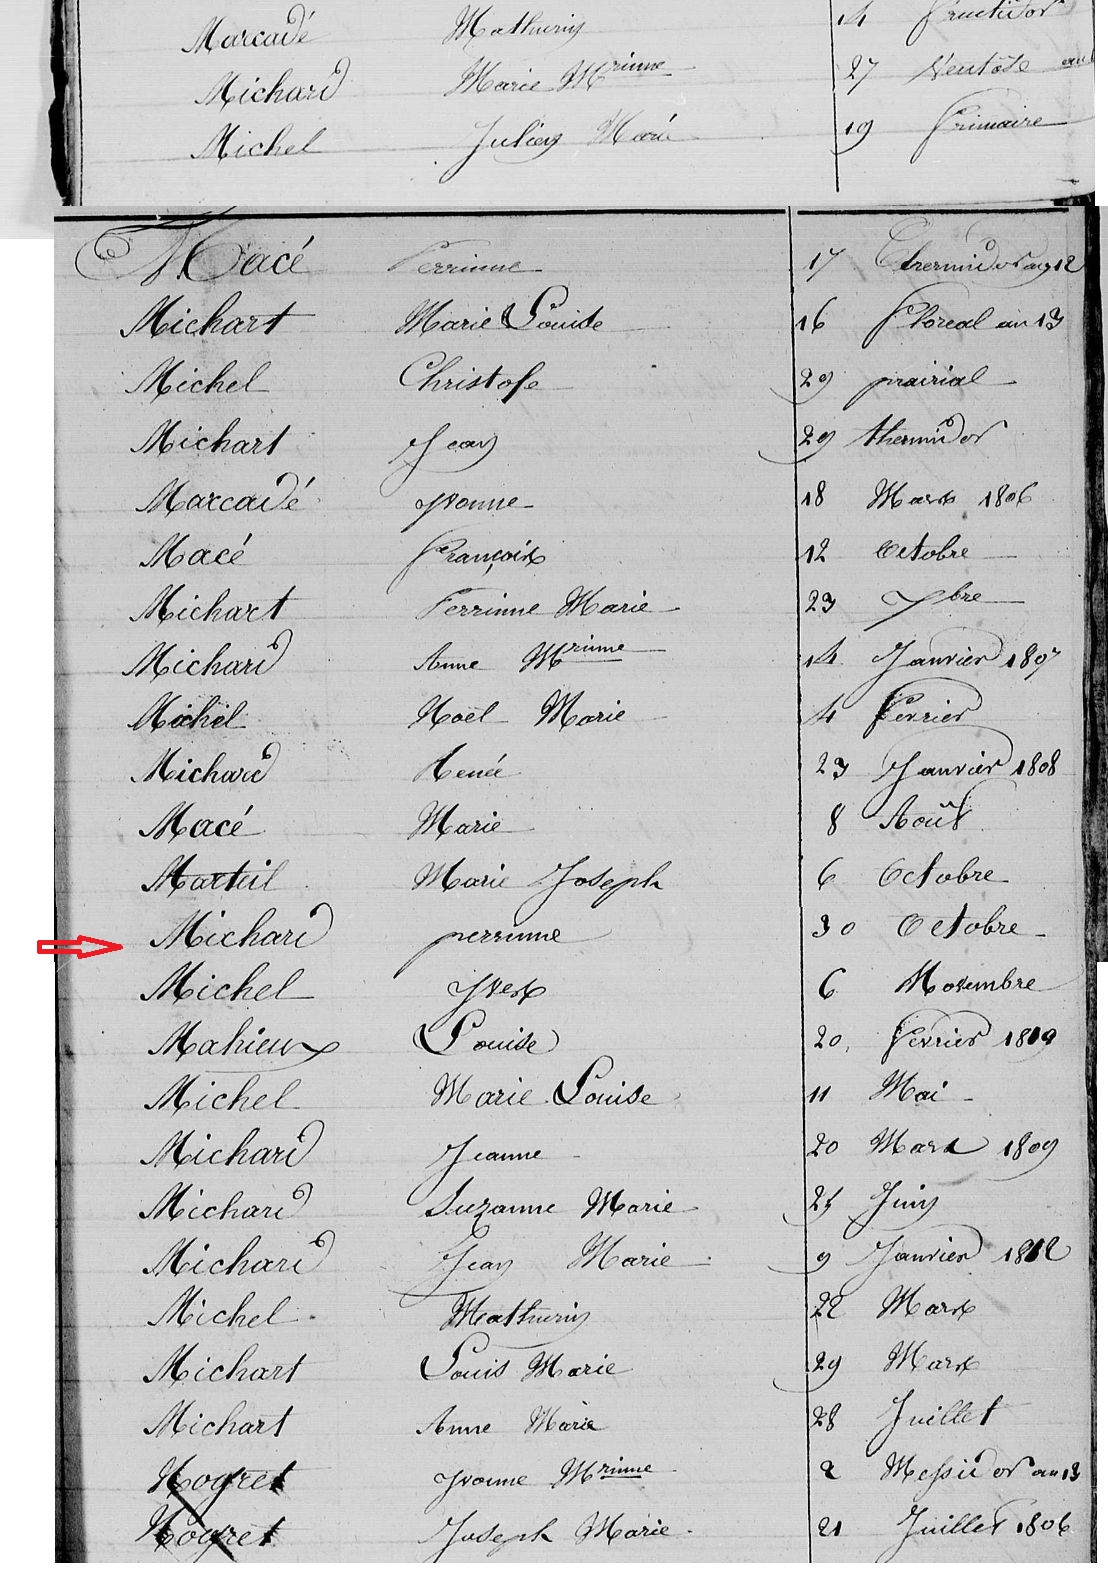 Marcadé Mathurin 14 fructidor
Michard Marie Mrinne 27 Ventôse an
Michel Julien Marie 19 frimaire
Macé Perrinne 17 thermidor an 12
Michart Marie Louise 16 floreal an 13
Michel Christofe 29 prairial
Michart Jean 29 thermidor
Marcadé yvonne 18 Mars 1806
Macé françois 12 octobre
Michart Perrinne Marie 23 7bre
Michard Anne Mrinne 14 Janvier 1807
Michel Noël Marie 4 fevrier
Michard Renée 23 Janvier 1808
Macé Marie 8 Août
Marteil Marie Joseph 6 Octobre
Michard perrinne 30 Octobre
Michel yves 6 Novembre
Mahieux Louise 20 fevrier
Michel Marie Louise 11 Mai
Michard Jeanne 20 Mars 1809
Michard Suzanne Marie 25 Juin
Michard Jean Marie 9 Janvier 1812
Michel Mathurin 22 Mars
Michart Louis Marie 29 Mars
Michart Anne Marie 28 Juillet
Nogret yvonne Mrinne 2 Messidor an 13
Nogret Joseph Marie 21 Juillet 1806